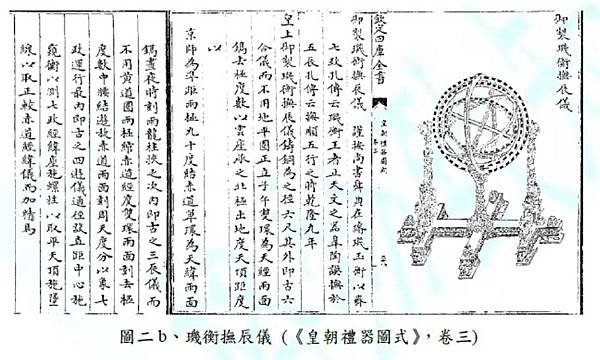 御製璣衡撫辰儀
欽定四庫全書
皇朝禮器圖式
卷三
御製璣衡撫辰儀 謹按尚書舜典在璿璣玉衡以齊
七政孔傳云璣衡王者正天文之器皋陶謨撫於
五辰孔傳云撫順五行之時乾隆九年
皇上御製璣衡撫辰儀鑄銅為之徑六尺其外即古六
合儀而不用地平圈正立子午雙環為天經兩面
鐫去極度數以雲座承之北極出地度天頂距度
以
京師為準距兩極九十度結赤道單環為天緯兩面
鐫晝夜時刻兩龍柱挾之次内即古之三辰儀而
不用黃道圈兩極綰赤道經度雙環兩面刻去極
度數中腰結遊旋赤道兩面刻周天度分以象七
政運行最内即古之四遊儀通徑設直距中心施
窺衡以測七政經緯座施螺柱以取平天頂施墜
線以取正較赤道經緯儀而加精焉
圖二b、璣衡撫辰儀（《皇朝禮器圖式》，卷三）